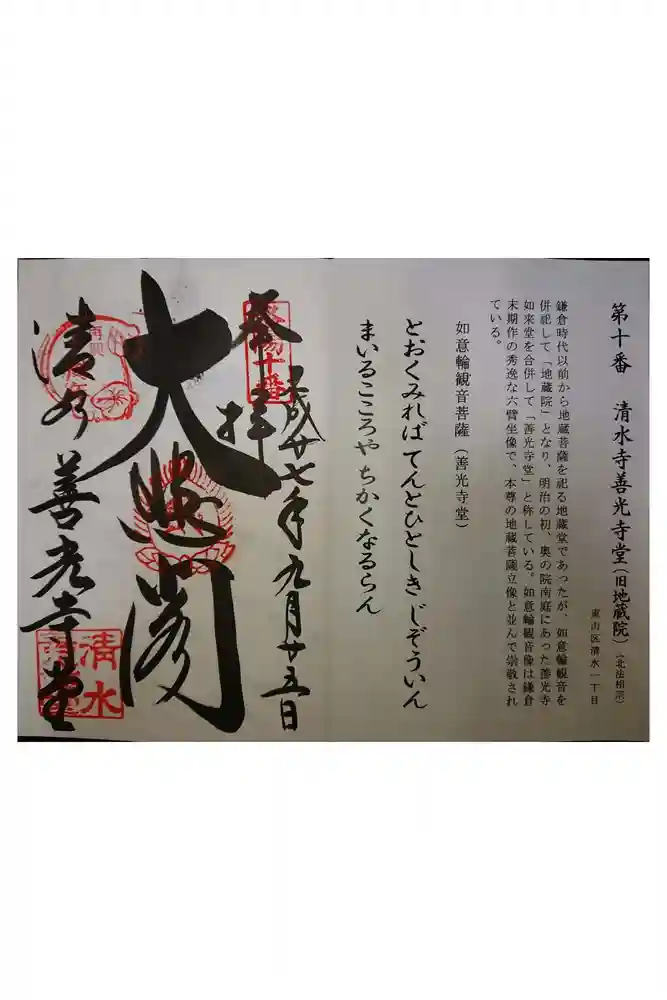 第十番　清水寺善光寺堂（旧地蔵院）（北法相宗）
東山区清水一丁目
鎌倉時代以前から地蔵菩薩を祀る地蔵堂であったが、如意輪観音を
併祀して「地蔵院」となり、明治の初、奥の院南庭にあった善光寺
如来堂を合併して「善光寺堂」と称している。如意輪観音像は鎌倉
末期作の秀逸な六臂坐像で、本尊の地蔵菩薩立像と並んで崇敬され
ている。
如意輪観音菩薩（善光寺堂）
とおくみれば てんとひとしき じぞういん
まいるこころや ちかくなるらん
奉拝
平成廿七年九月廿五日
洛陽十番
大悲閣
清水 善光寺堂
清水